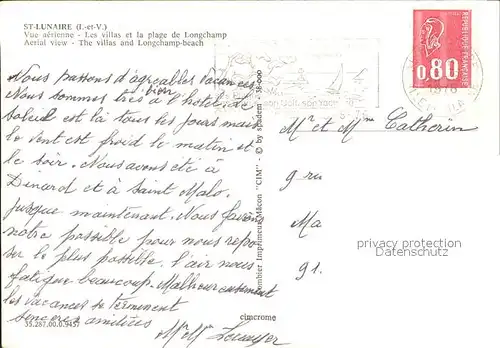 ST-LUNAIRE (I.-et-V.)
Vue aérienne - Les villas et la plage de Longchamp
Aerial view - The villas and Longchamp-beach
REPUBLIQUE FRANÇAISE
0,80
Nous passons d'agréables vacances
Nous sommes très bien à l'hôtel, le
soleil est là tous les jours mais
le vent est froid le matin et
le soir. Nous avons été à
Dinard et à Saint Malo,
jusque maintenant. Nous faisons
notre possible pour nous repo-
ser le plus possible. l'air nous
fatigue beaucoup. Malheureusement
les vacances se terminent
sincères amitiés
Mr Mme
Mr et Mme Catherin
9 rue
Ma
91.
privacy protection
watermark
Combier Imprimeur Mâcon "CIM" - © by spadem - 38-000
cimcrome
35.287.00.0.9457